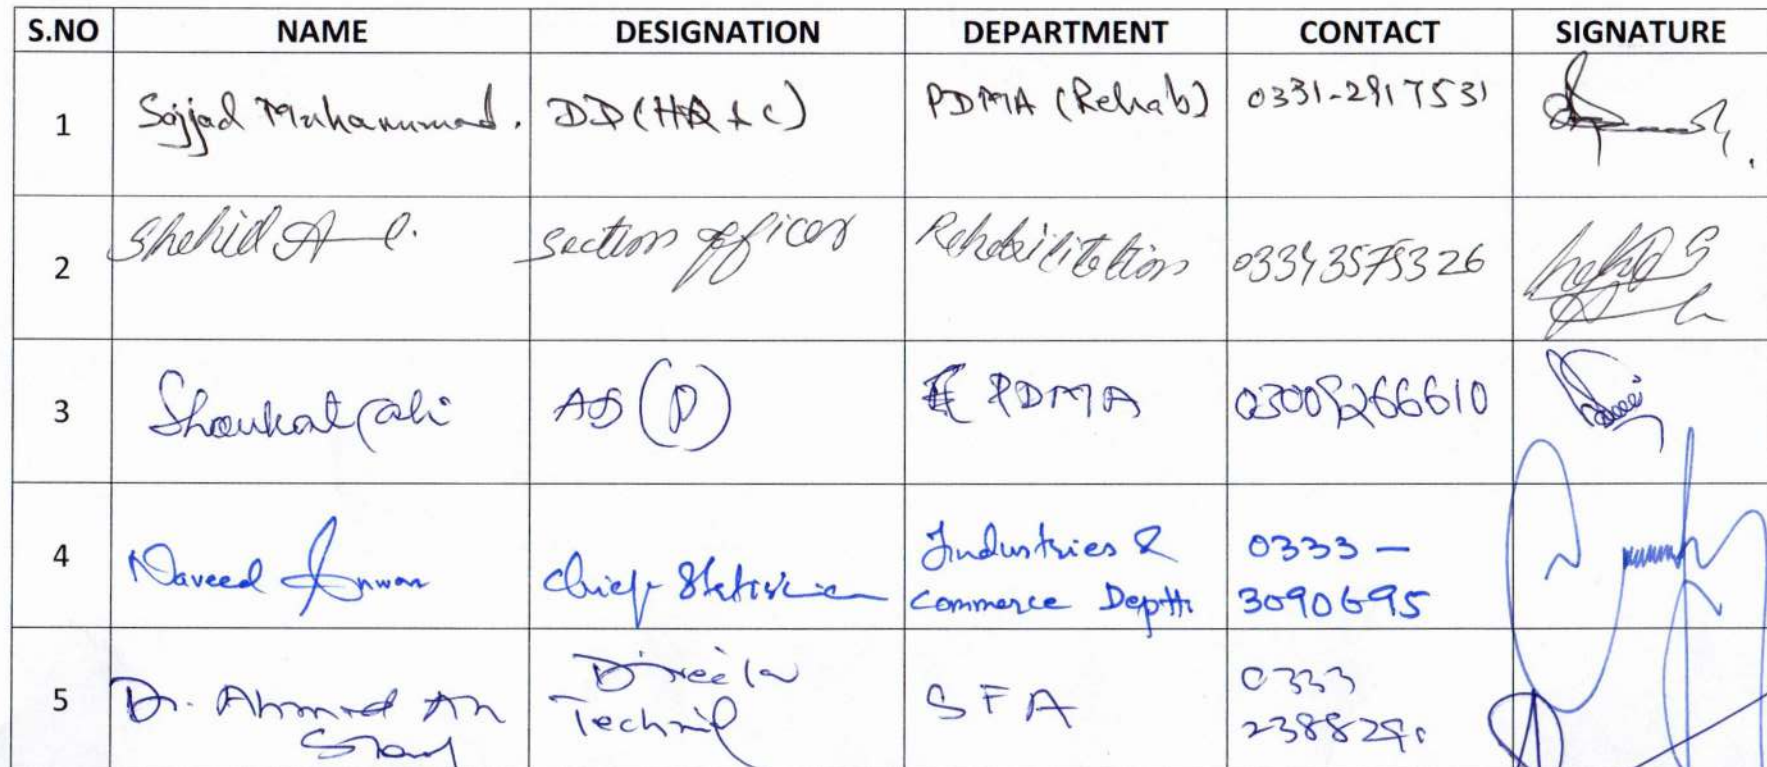 S.NO NAME DESIGNATION DEPARTMENT CONTACT SIGNATURE
1 Sajjad Muhammad. DD (HR & C) PDMA (Rehab) 0331-2917531
2 Shahid section officer Rehabilitation 03343575326
3 Shoukat Ali AD (P) PDMA 03009266610
4 Naveed Anwar Chief Statistician Industries & Commerce Deptt: 0333 - 3090695
5 Dr. Ahmed Director Technical SFA 0333